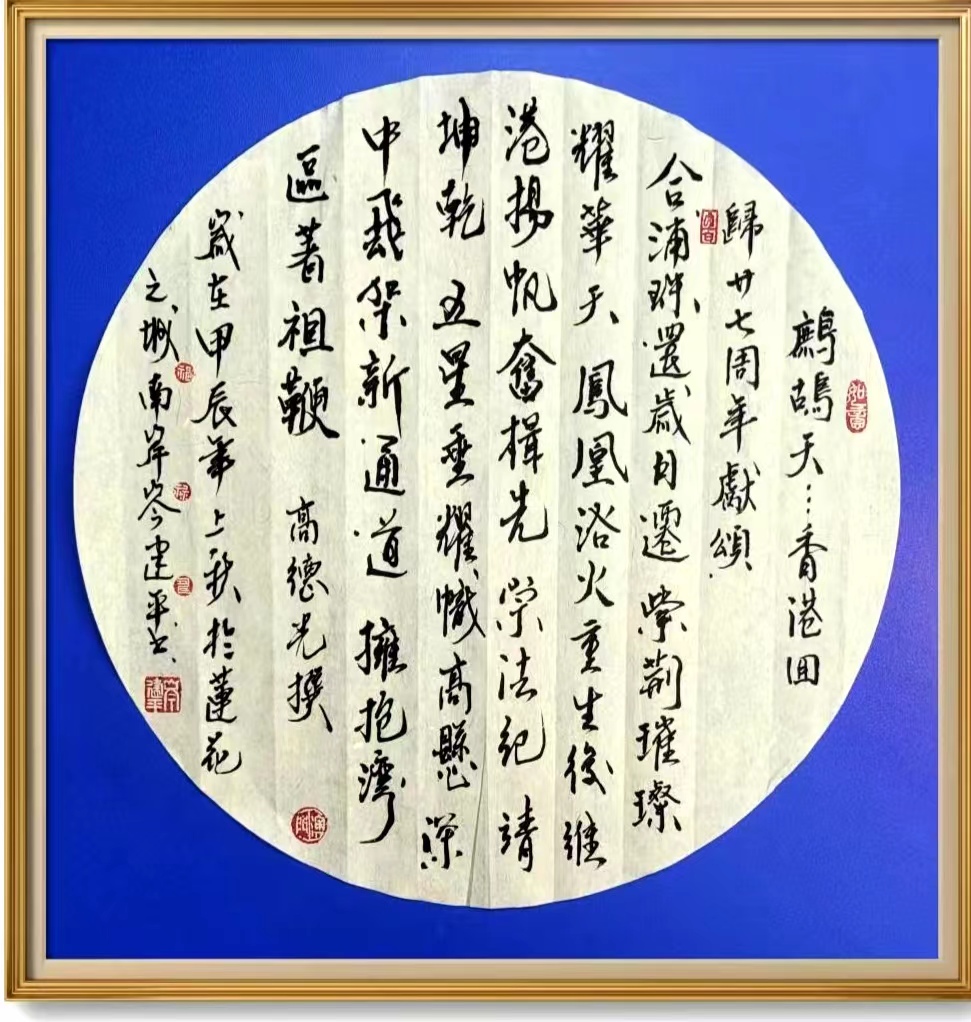 鷓鴣天…香港回
歸廿七周年獻頌
合浦珠還歲月遷 紫荊璀璨
耀華天 鳳凰浴火重生後 維
港揚帆奮楫先 崇法紀 靖
坤乾 五星垂耀幟高懸 深
中飛架新通道 擁抱灣
區著祖鞭 高德光撰
歲在甲辰年上秋於蓮花
之城南岸岑建平書
如意
岑建平